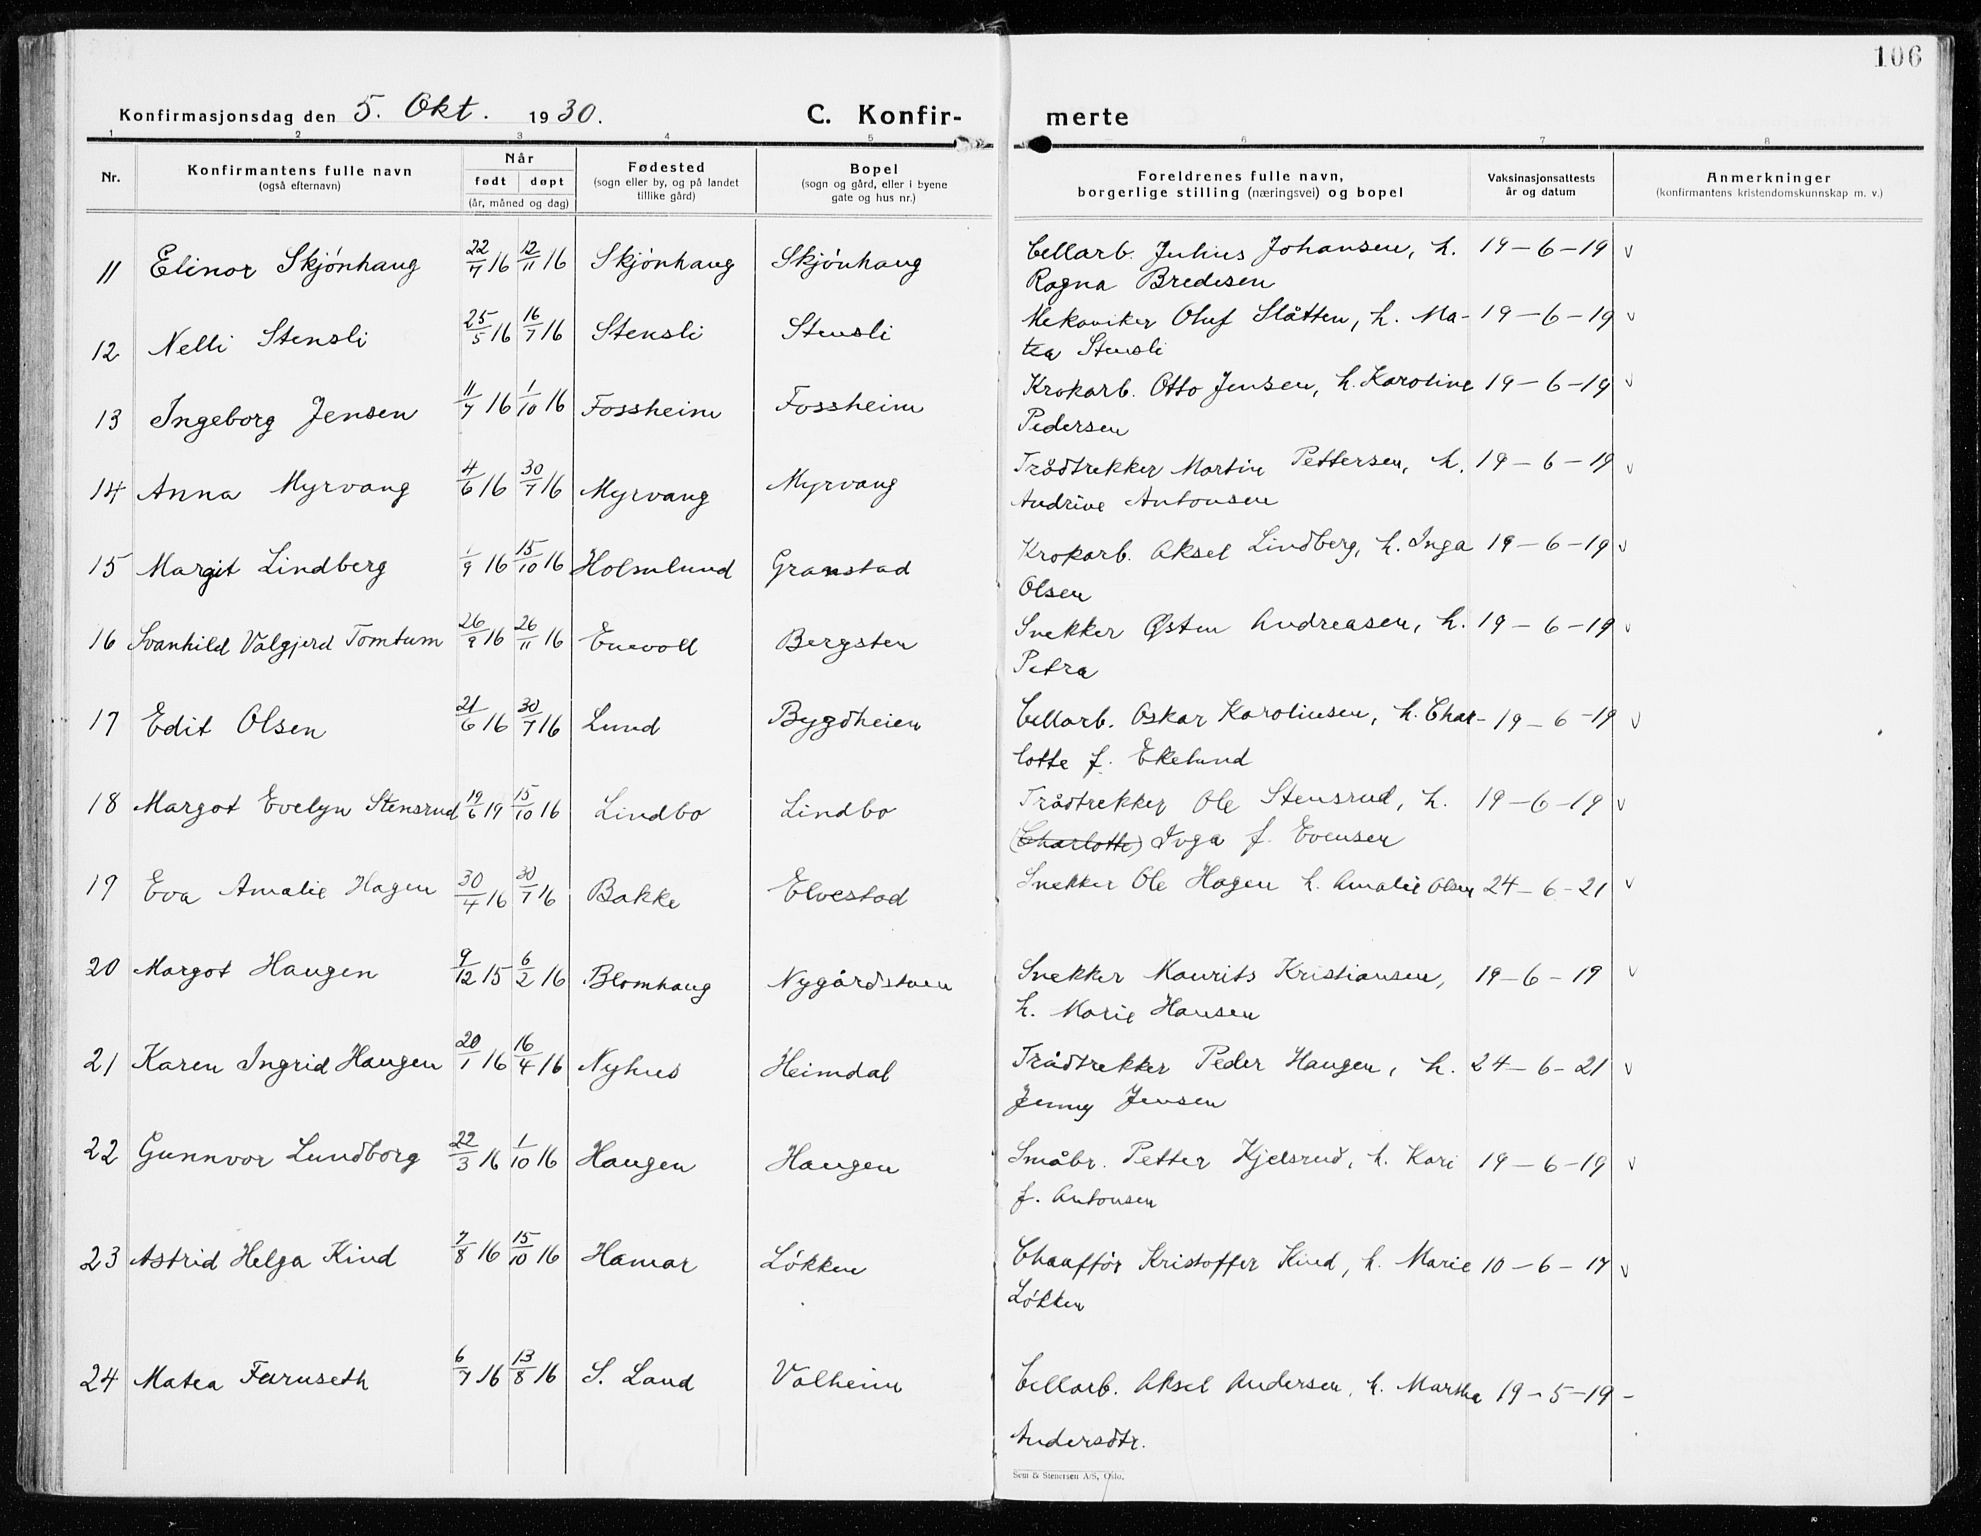 106
Konfirmasjonsdag den 5. Okt. 1930. C. Konfir- merte
1 2 3 4 5 6 7 8
Nr. Konfirmantens fulle navn (også efternavn) Når født døpt (år, måned og dag) Fødested (sogn eller by, og på landet tillike gård) Bopel (sogn og gård, eller i byene gate og hus nr.) Foreldrenes fulle navn, borgerlige stilling (næringsvei) og bopel Vaksinasjonsattests år og datum Anmerkninger (konfirmantens kristendomskunnskap m. v.)
11 Elinor Skjønhaug 22/7 16 12/11 16 Skjønhaug Skjønhaug Cellarb. Julius Johansen, h. 19-6-19 v
Ragna Bredesen
12 Nelli Stensli 25/5 16 16/7 16 Stensli Stensli Mekaniker Oluf Slåtten, h. Ma- 19-6-19 v
tea Stensli
13 Ingeborg Jensen 11/7 16 1/10 16 Fossheim Fossheim Krokarb. Otto Jensen, h. Karoline 19-6-19 v
Pedersen
14 Anna Myrvang 4/6 16 30/7 16 Myrvang Myrvang Trådtrekker Martin Pettersen, h. 19-6-19 v
Andrine Antonsen
15 Margit Lindberg 1/9 16 15/10 16 Holmlund Granstad Krokarb. Aksel Lindberg, h. Inga 19-6-19 v
Olsen
16 Svanhild Valgjerd Tomtum 26/9 16 26/11 16 Enevold Bergsten Snekker Østen Andreasen, h. 19-6-19 v
Petra
17 Edit Olsen 21/6 16 30/7 16 Lund Bygdheien Cellarb. Oskar Karolinsen, h. Char- 19-6-19 v
lotte f. Ekelund
18 Margot Evelyn Stensrud 19/6 19 15/10 16 Lindbo Lindbo Trådtrekker Ole Stensrud, h. 19-6-19 v
(Charlotte) Inga f. Evensen
19 Eva Amalie Hagen 30/4 16 30/7 16 Bakke Elvestad Snekker Ole Hagen h. Amalie Olsen 24-6-21 v
20 Margot Haugen 9/12 15 6/2 16 Blomhaug Nygårdstuen Snekker Maurits Kristiansen, 19-6-19 v
h. Marie Hansen
21 Karen Ingrid Haugen 20/1 16 16/4 16 Nyhus Heimdal Trådtrekker Peder Haugen, h. 24-6-21 v
Jenny Jensen
22 Gunnvor Lundborg 22/3 16 1/10 16 Haugen Haugen Småbr. Petter Kjelsrud, h. Kari 19-6-19 v
f. Antonsen
23 Astrid Helga Kind 7/8 16 15/10 16 Hamar Løkken Chauffør Kristoffer Kind, h. Marie 10-6-17 v
Løkken
24 Matea Faruseth 6/7 16 13/8 16 S. Land Valheim Cellarb. Aksel Andersen, h. Martha 19-5-19 -
Andersdtr.
Sem & Stenersen A/S, Oslo.